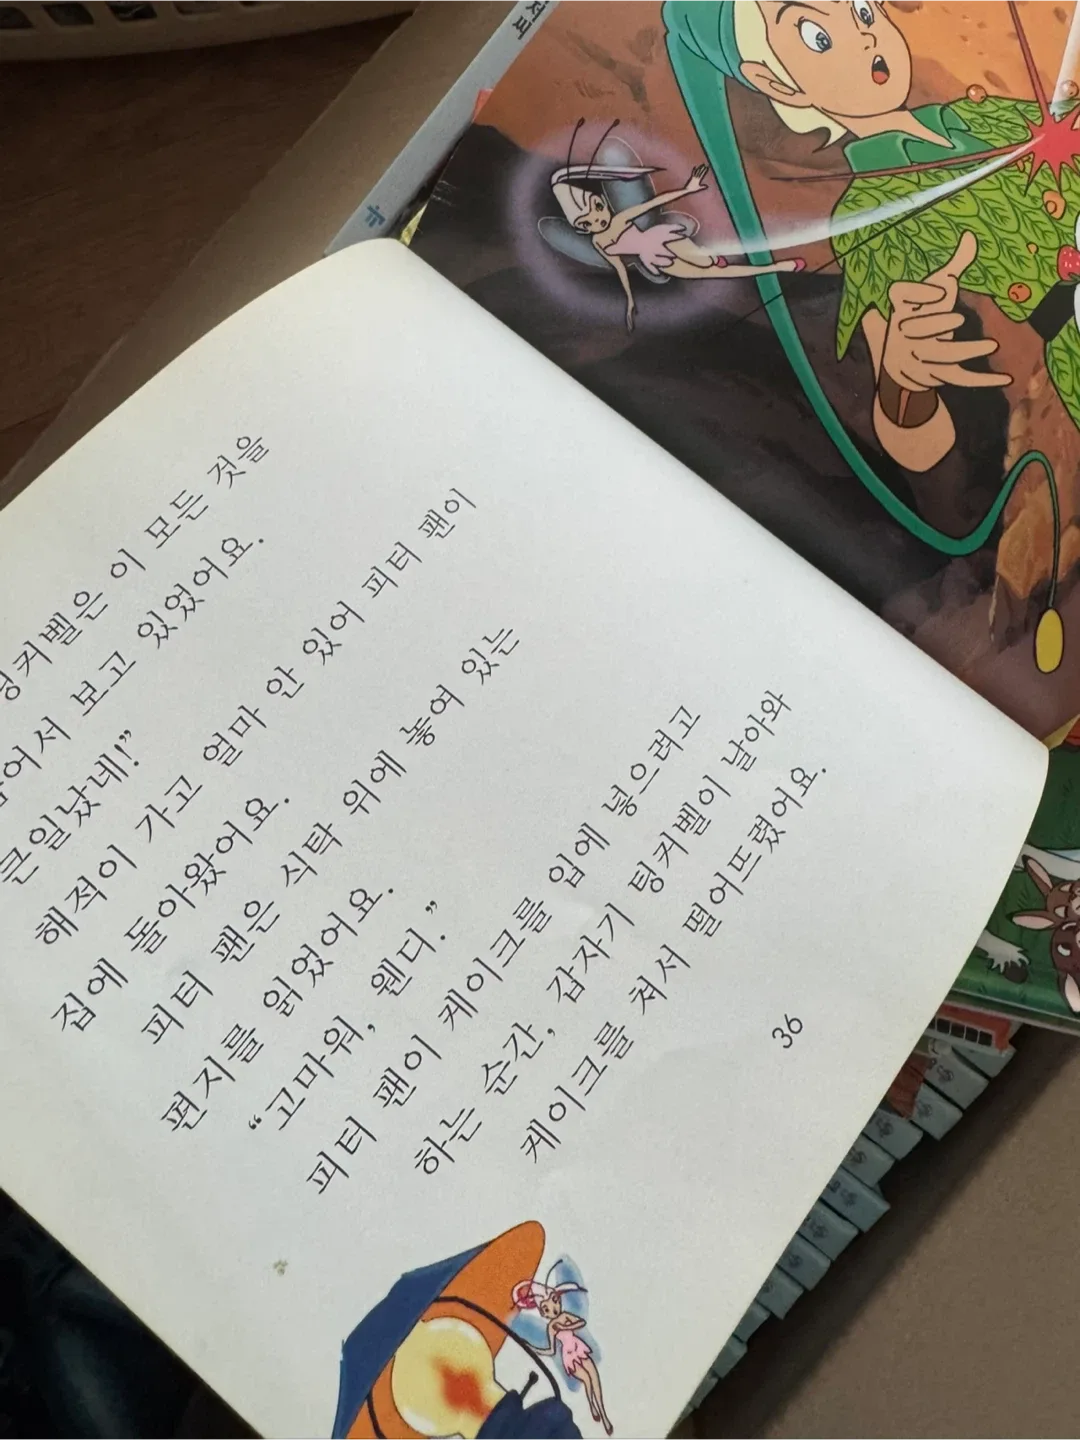 팅커벨은 이 모든 것을
숨어서 보고 있었어요.
큰일났네!”
해적이 가고 얼마 안 있어 피터 팬이
집에 돌아왔어요.
피터 팬은 식탁 위에 놓여 있는
편지를 읽었어요.
“고마워, 웬디.”
피터 팬이 케이크를 입에 넣으려고
하는 순간, 갑자기 팅커벨이 날아와
케이크를 쳐서 떨어뜨렸어요.
36